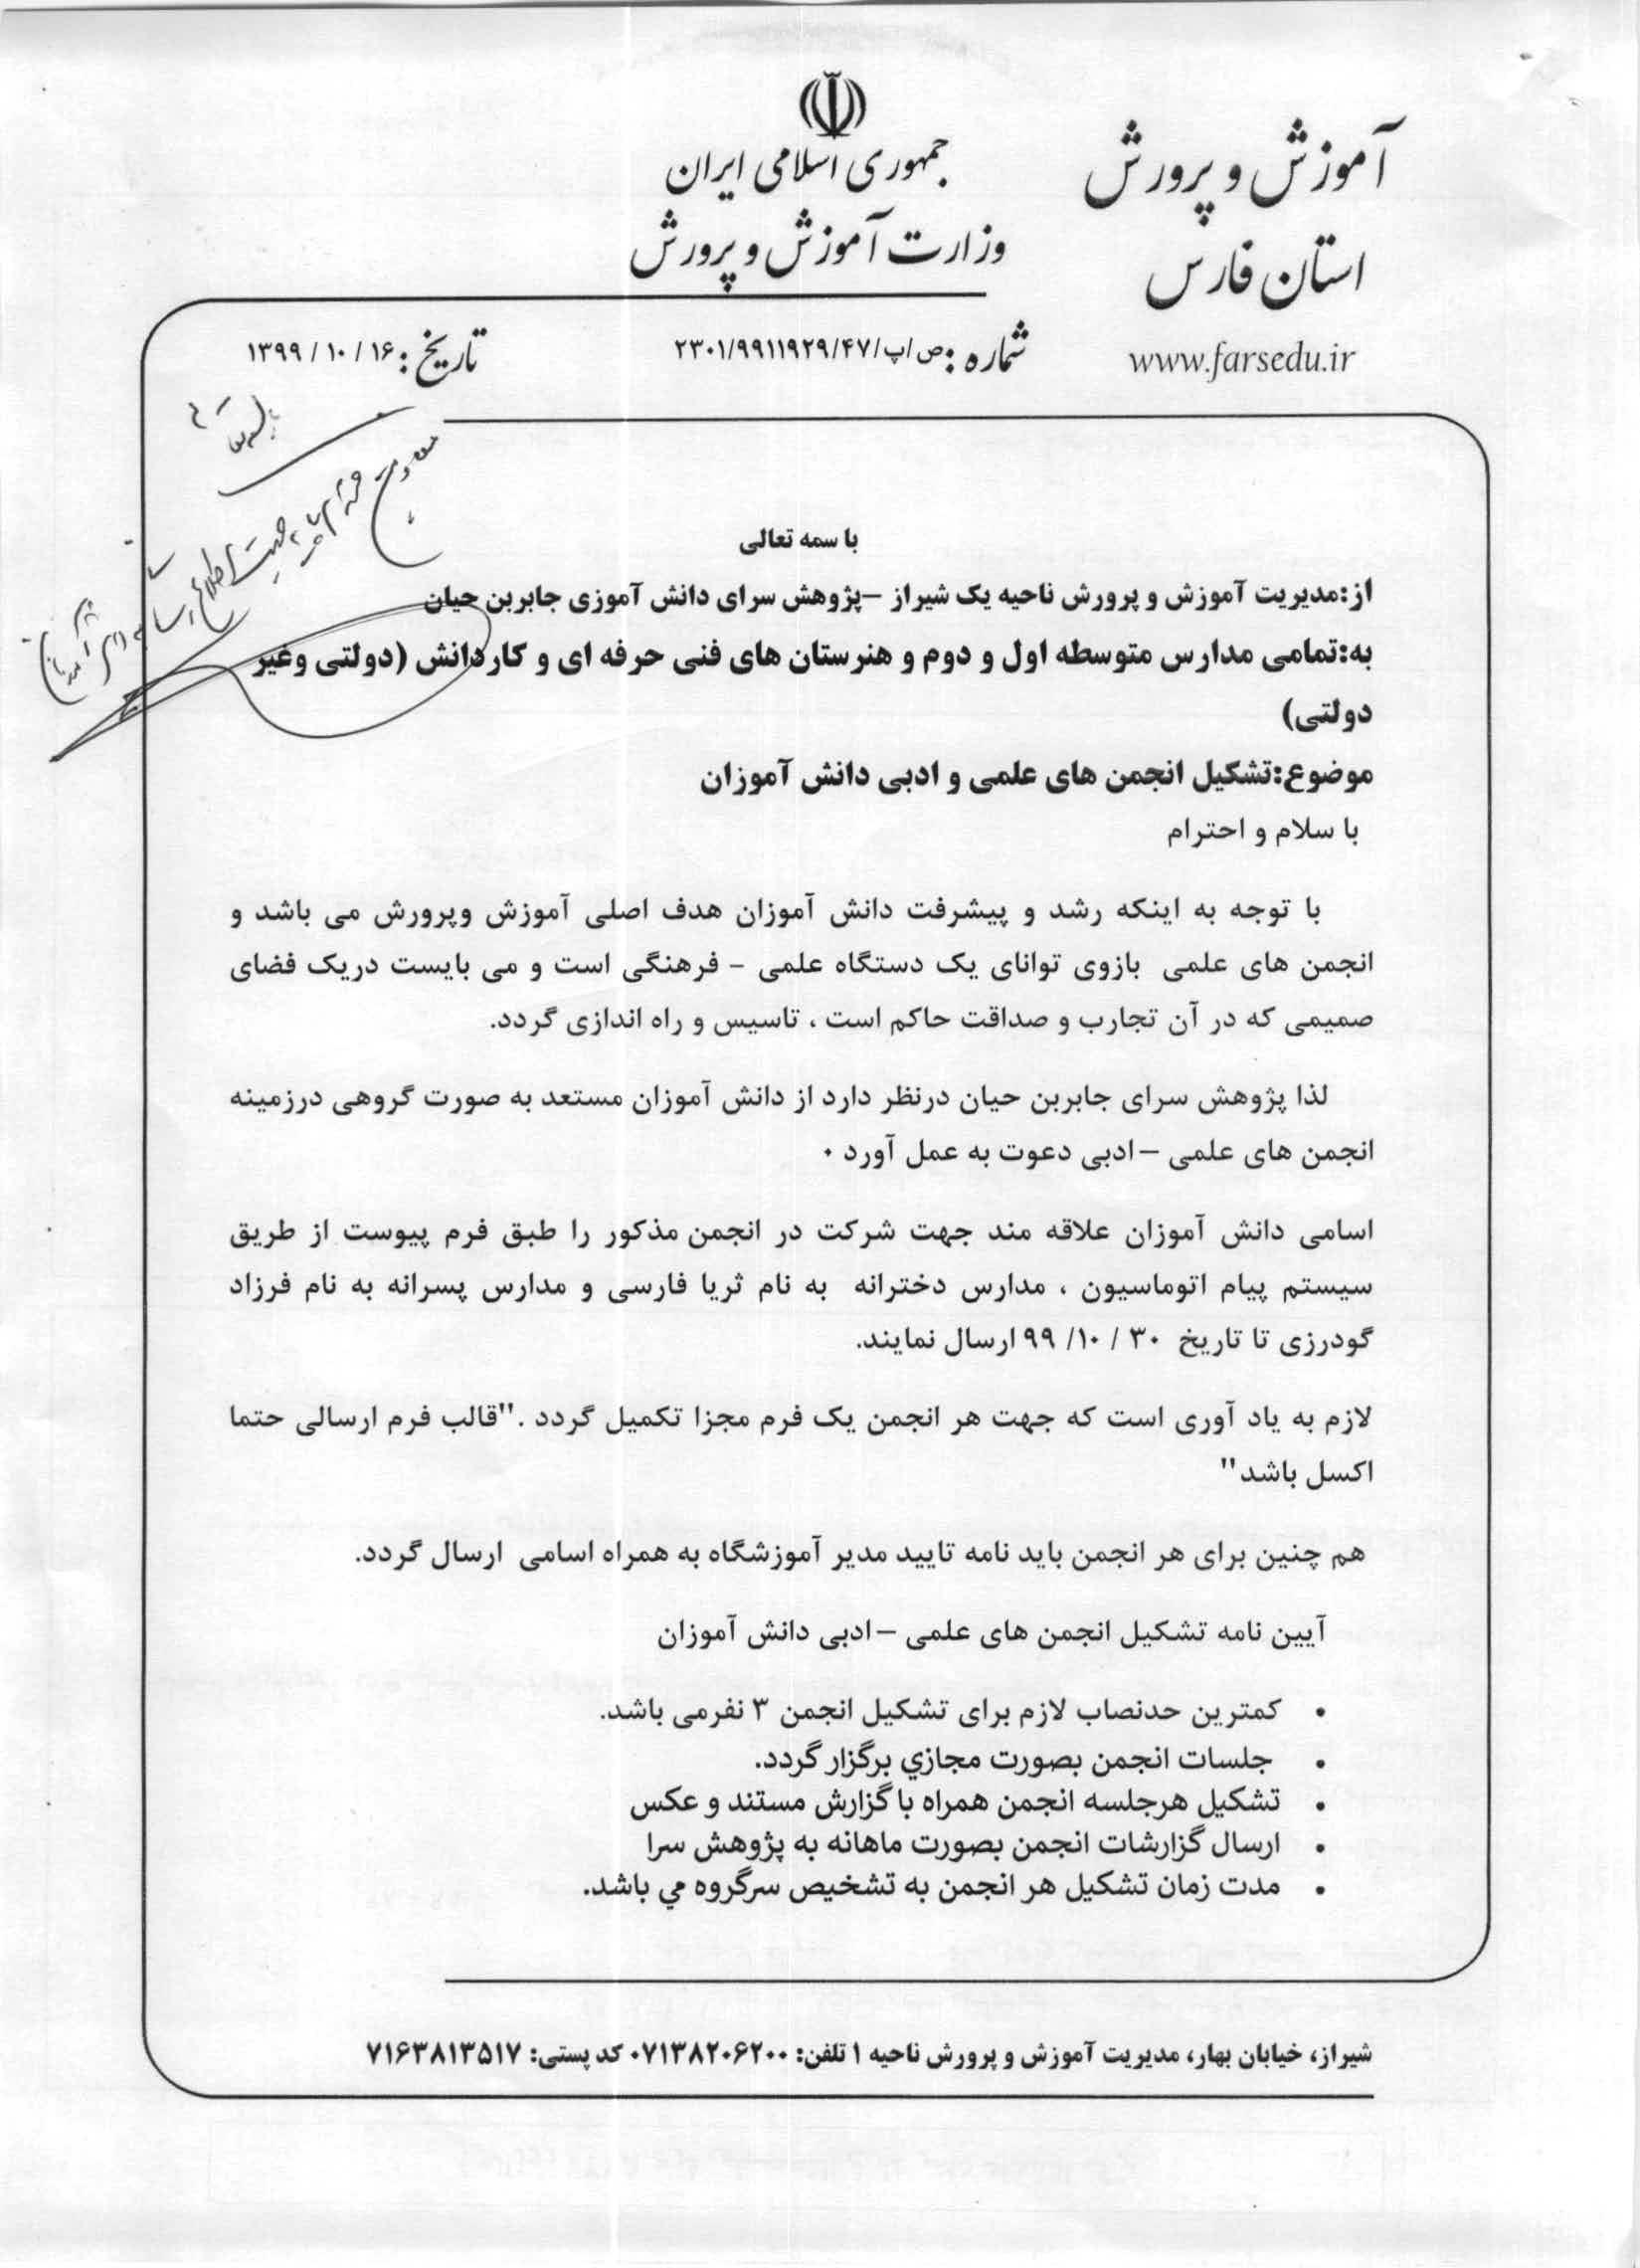 آموزش و پرورش
استان فارس
www.farsedu.ir
جمهوری اسلامی ایران
وزارت آموزش و پرورش
شماره: ص/پ/۲۳۰۱/۹۹۱۱۹۲۹/۴۷
تاریخ: ۱۳۹۹/۱۰/۱۶
با سمه تعالی
از:مدیریت آموزش و پرورش ناحیه یک شیراز –پژوهش سرای دانش آموزی جابربن حیان
به:تمامی مدارس متوسطه اول و دوم و هنرستان های فنی حرفه ای و کاردانش (دولتی وغیر
دولتی)
موضوع:تشکیل انجمن های علمی و ادبی دانش آموزان
با سلام و احترام
با توجه به اینکه رشد و پیشرفت دانش آموزان هدف اصلی آموزش وپرورش می باشد و
انجمن های علمی بازوی توانای یک دستگاه علمی - فرهنگی است و می بایست دریک فضای
صمیمی که در آن تجارب و صداقت حاکم است ، تاسیس و راه اندازی گردد.
لذا پژوهش سرای جابربن حیان درنظر دارد از دانش آموزان مستعد به صورت گروهی درزمینه
انجمن های علمی –ادبی دعوت به عمل آورد ۰
اسامی دانش آموزان علاقه مند جهت شرکت در انجمن مذکور را طبق فرم پیوست از طریق
سیستم پیام اتوماسیون ، مدارس دخترانه به نام ثریا فارسی و مدارس پسرانه به نام فرزاد
گودرزی تا تاریخ ۳۰ / ۱۰/ ۹۹ ارسال نمایند.
لازم به یاد آوری است که جهت هر انجمن یک فرم مجزا تکمیل گردد ."قالب فرم ارسالی حتما
اکسل باشد"
هم چنین برای هر انجمن باید نامه تایید مدیر آموزشگاه به همراه اسامی ارسال گردد.
آیین نامه تشکیل انجمن های علمی –ادبی دانش آموزان
• کمترین حدنصاب لازم برای تشکیل انجمن ۳ نفرمی باشد.
• جلسات انجمن بصورت مجازي برگزار گردد.
• تشکیل هرجلسه انجمن همراه با گزارش مستند و عکس
• ارسال گزارشات انجمن بصورت ماهانه به پژوهش سرا
• مدت زمان تشکیل هر انجمن به تشخیص سرگروه مي باشد.
شیراز، خیابان بهار، مدیریت آموزش و پرورش ناحیه ۱ تلفن: ۰۷۱۳۸۲۰۶۲۰۰ کد پستی: ۷۱۶۳۸۱۳۵۱۷